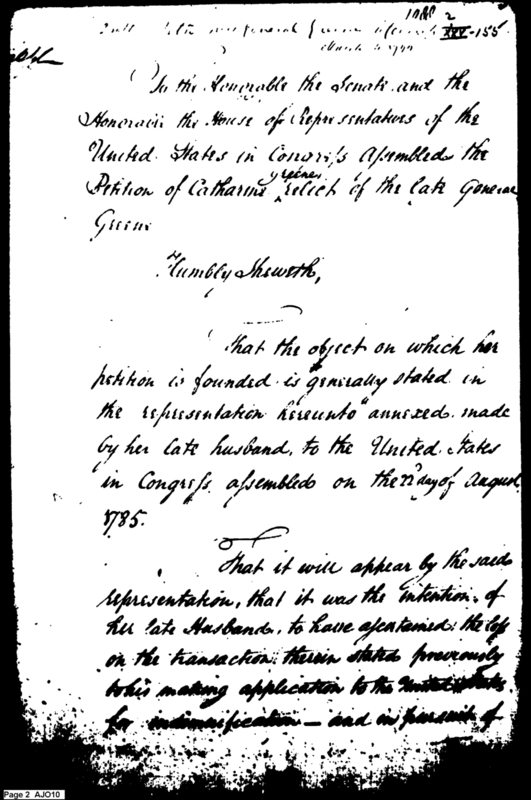 1988 2
XXV-155
March 4 1790
To the Honorable the Senate and the
Honorable the House of Representatives of the
United States in Congress Assembled the
Petition of Catharine Greene relict of the late General
Greene
Humbly Sheweth,
That the object on which her
petition is founded is generally stated in
the representation hereunto annexed made
by her late husband, to the United States
in Congress assembled on the 22 day of August
1785.
That it will appear by the said
representation, that it was the intention of
her late Husband, to have ascertained the loss
on the transaction therein stated previously
to his making application to the United States
for indemnification — and in pursuit of
Page 2 AJO10